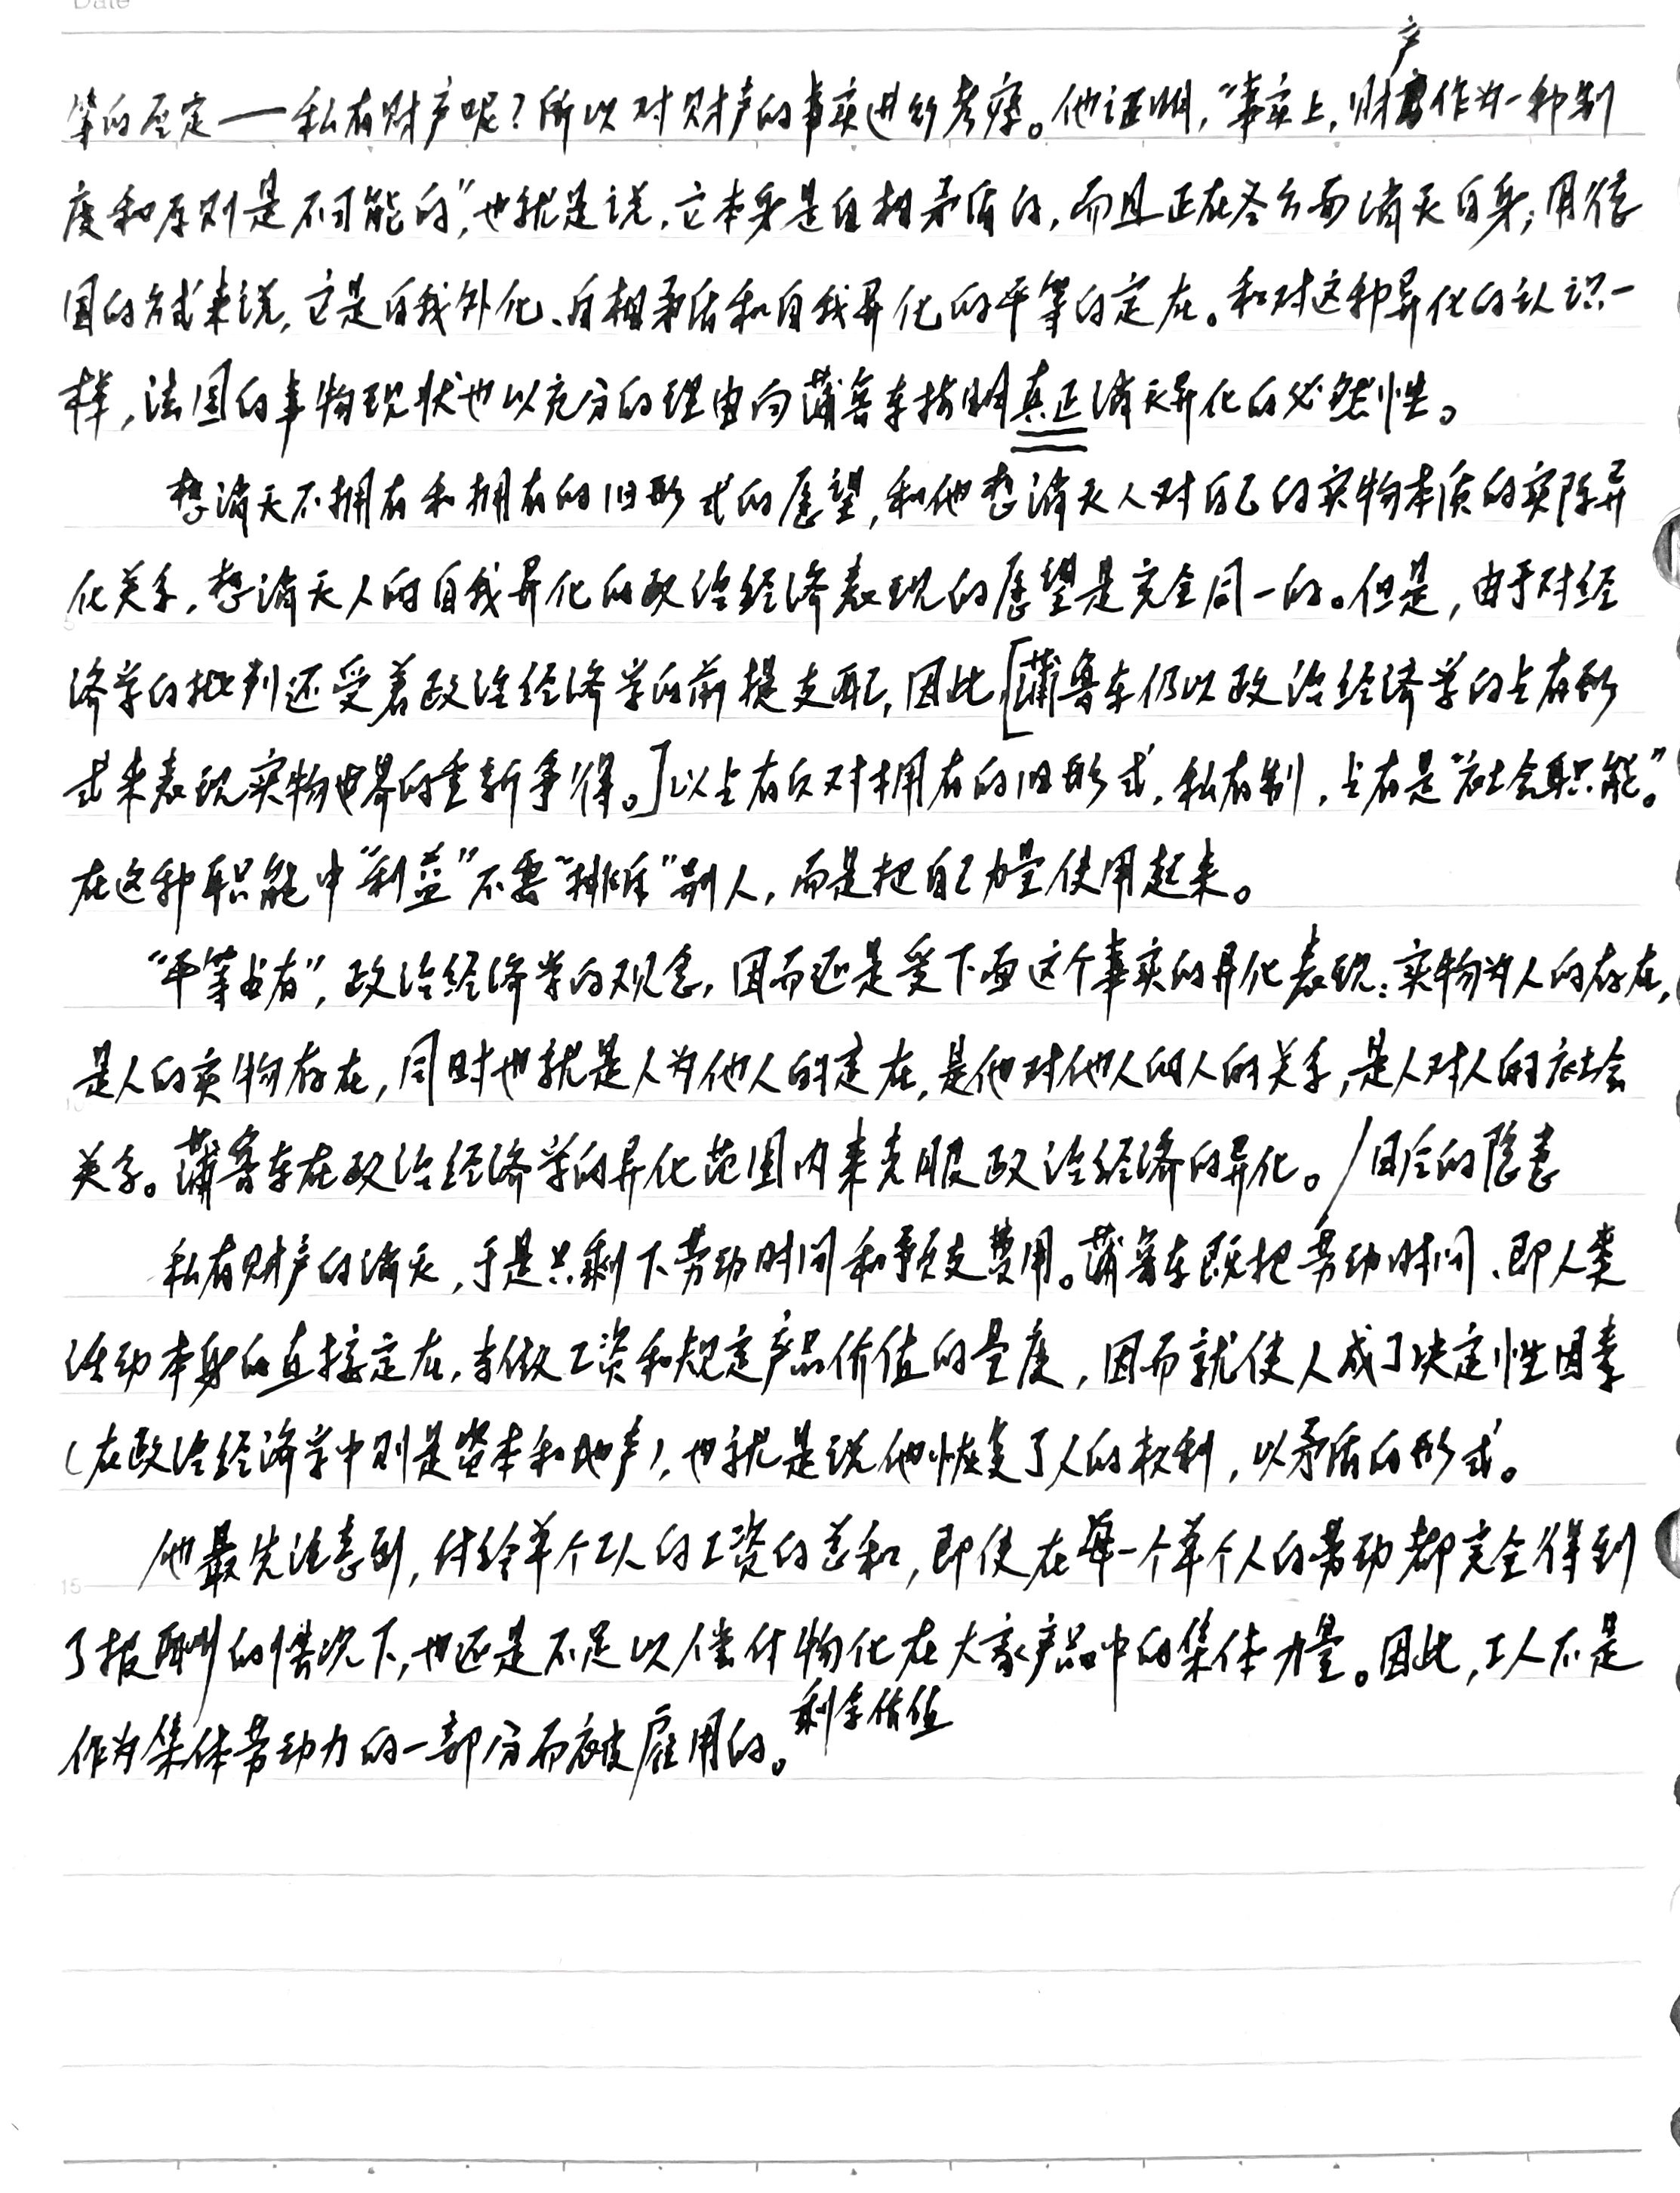 Date
产
等的否定——私有财产呢？所以对财产的事实进行考察。他证明，“事实上，财作为一种制
度和原则是不可能的”，也就是说，它本身是自相矛盾的，而且正在各方面消灭自身；用德
国的方式来说，它是自我外化、自相矛盾和自我异化的平等的定在。和对这种异化的认识一
样，法国的事物现状也以充分的理由向蒲鲁东指明真正消灭异化的必然性。
想消灭不拥有和拥有的旧形式的愿望，和他想消灭人对自己的实物本质的实际异
化关系，想消灭人的自我异化的政治经济表现的愿望是完全同一的。但是，由于对经
济学的批判还受着政治经济学的前提支配，因此[蒲鲁东仍以政治经济学的占有形
式来表现实物世界的重新争得。]以占有反对拥有的旧形式，私有制，占有是“社会职能。”
在这种职能中“利益”不要“排斥”别人，而是把自己力量使用起来。
“平等占有”，政治经济学的观念，因而还是受下面这个事实的异化表现：实物为人的存在，
是人的实物存在，同时也就是人为他人的定在，是他对他人的人的关系，是人对人的社会
关系。蒲鲁东在政治经济学的异化范围内来克服政治经济的异化。/日后的隐患
私有财产的消灭，于是只剩下劳动时间和预支费用。蒲鲁东既把劳动时间、即人类
活动本身的直接定在，当做工资和规定产品价值的量度，因而就使人成了决定性因素
（在政治经济学中则是资本和地产），也就是说他恢复了人的权利，以矛盾的形式。
他最先注意到，付给单个工人的工资的总和，即使在每一个单个人的劳动都完全得到
15
了报酬的情况下，也还是不足以偿付物化在大家产品中的集体力量。因此，工人不是
作为集体劳动力的一部分而被雇用的。剩余价值